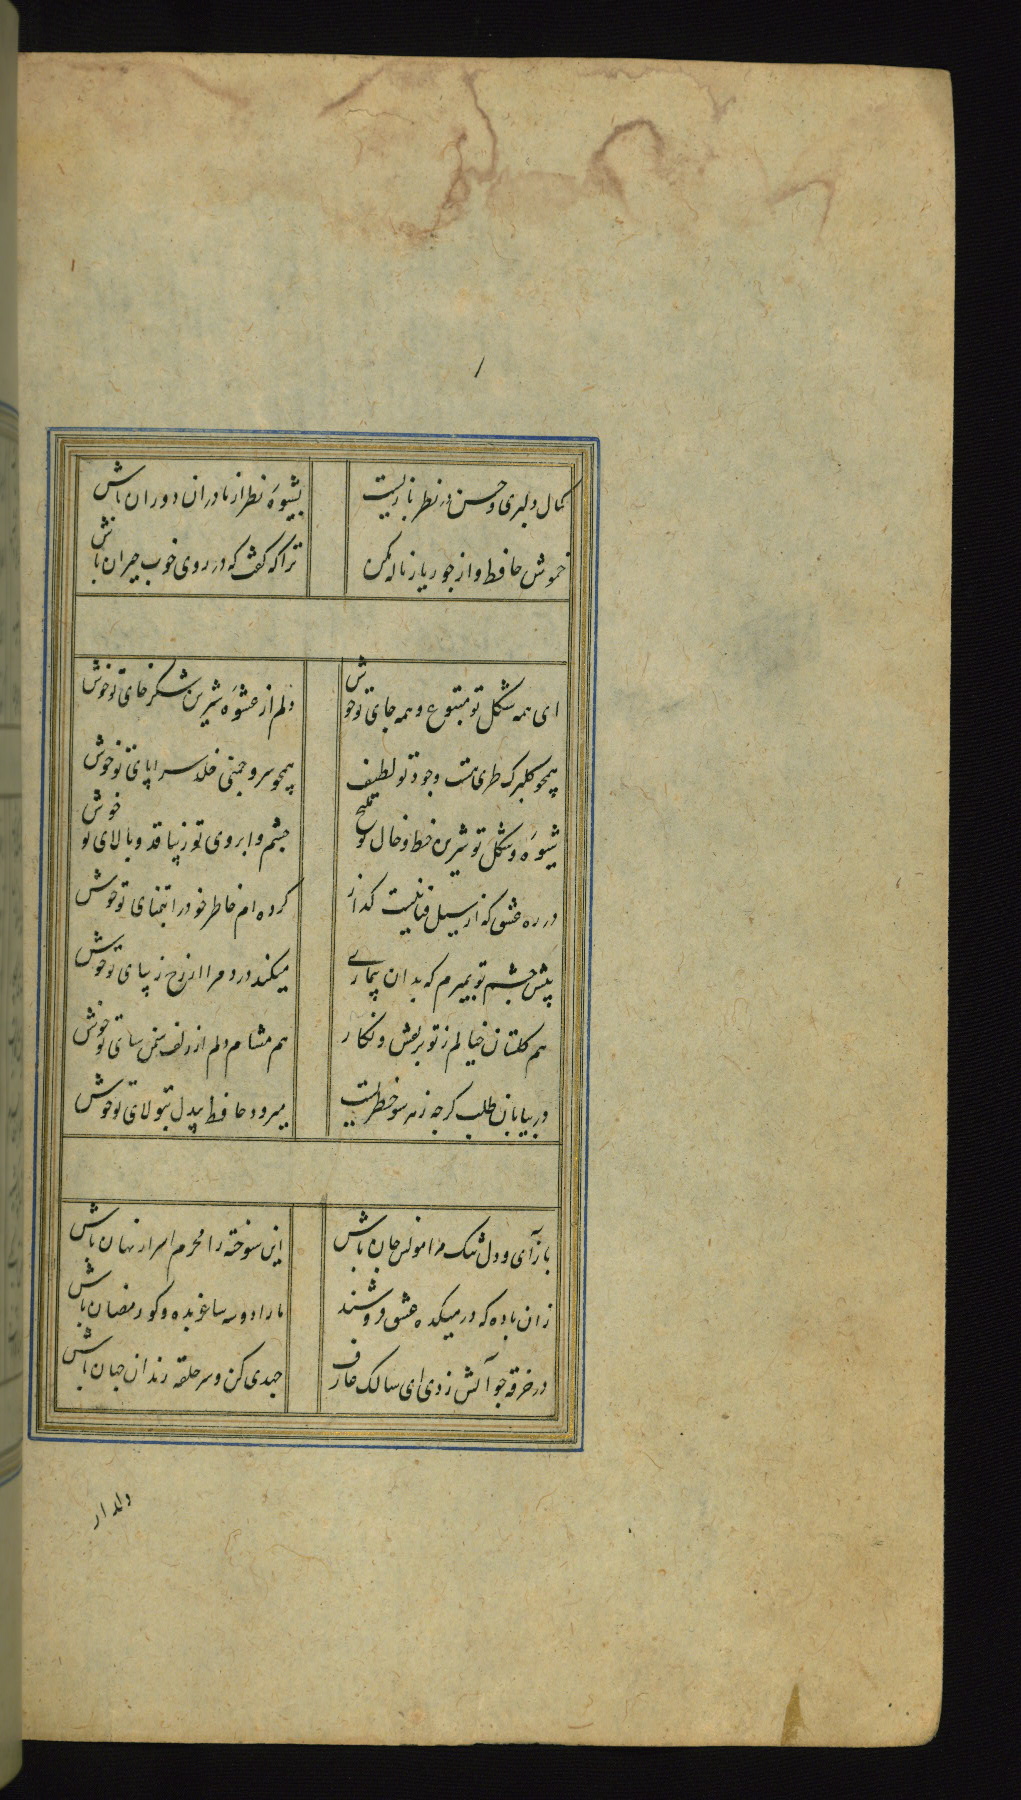 کمال دلبری و حسن در نظر بازیست بشیوهٔ نظر از نادران دوران باش
خموش حافظ و از جور یار ناله مکن ترا که گفت که در روی خوب حیران باش
ای همه شکل تو مطبوع و همه جای تو خوش دلم از عشوهٔ شیرین شکرخای تو خوش
همچو گلبرگ طری هست وجود تو لطیف همچو سرو چمنی خلد سراپای تو خوش
شیوهٔ و شکل تو شیرین خط و خال تو ملیح چشم و ابروی تو زیبا قد و بالای تو خوش
در ره عشق که از سیل فنا نیست گذار کرده ام خاطر خود را بتمنای تو خوش
پیش چشم تو بمیرم که بدان بیماری میکند درد مرا از رخ زیبای تو خوش
هم گلستان خیالم ز تو پر نقش و نگار هم مشام دلم از زلف سمن سای تو خوش
در بیابان طلب گرچه ز هر سو خطریست میرود حافظ بیدل بتولای تو خوش
باز آی و دل تنگ مرا مونس جان باش این سوخته را محرم اسرار نهان باش
زان باده که در میکده عشق فروشند ما را دو سه ساغر بده و گو رمضان باش
در خرقه چو آتش زدی ای سالک عارف جهدی کن و سر حلقه رندان جهان باش
دلدار